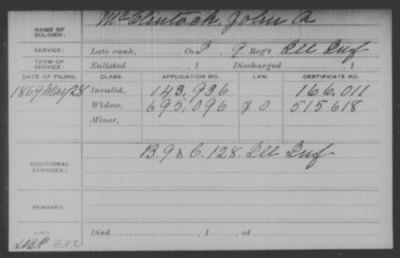 NAME OF SOLDIER: McClintock, John A
SERVICE: Late rank, Co. I, 9 Reg't Ill Inf
TERM OF SERVICE: Enlisted , 1 Discharged , 1
DATE OF FILING. CLASS. APPLICATION NO. LAW. CERTIFICATE NO.
1869 May 28 Invalid, 143,936 166,011
Widow, 695,096 515618
Minor,
ADDITIONAL SERVICES: B. 9 & C. 128. Ill Inf
REMARKS:
Died , 1 , at